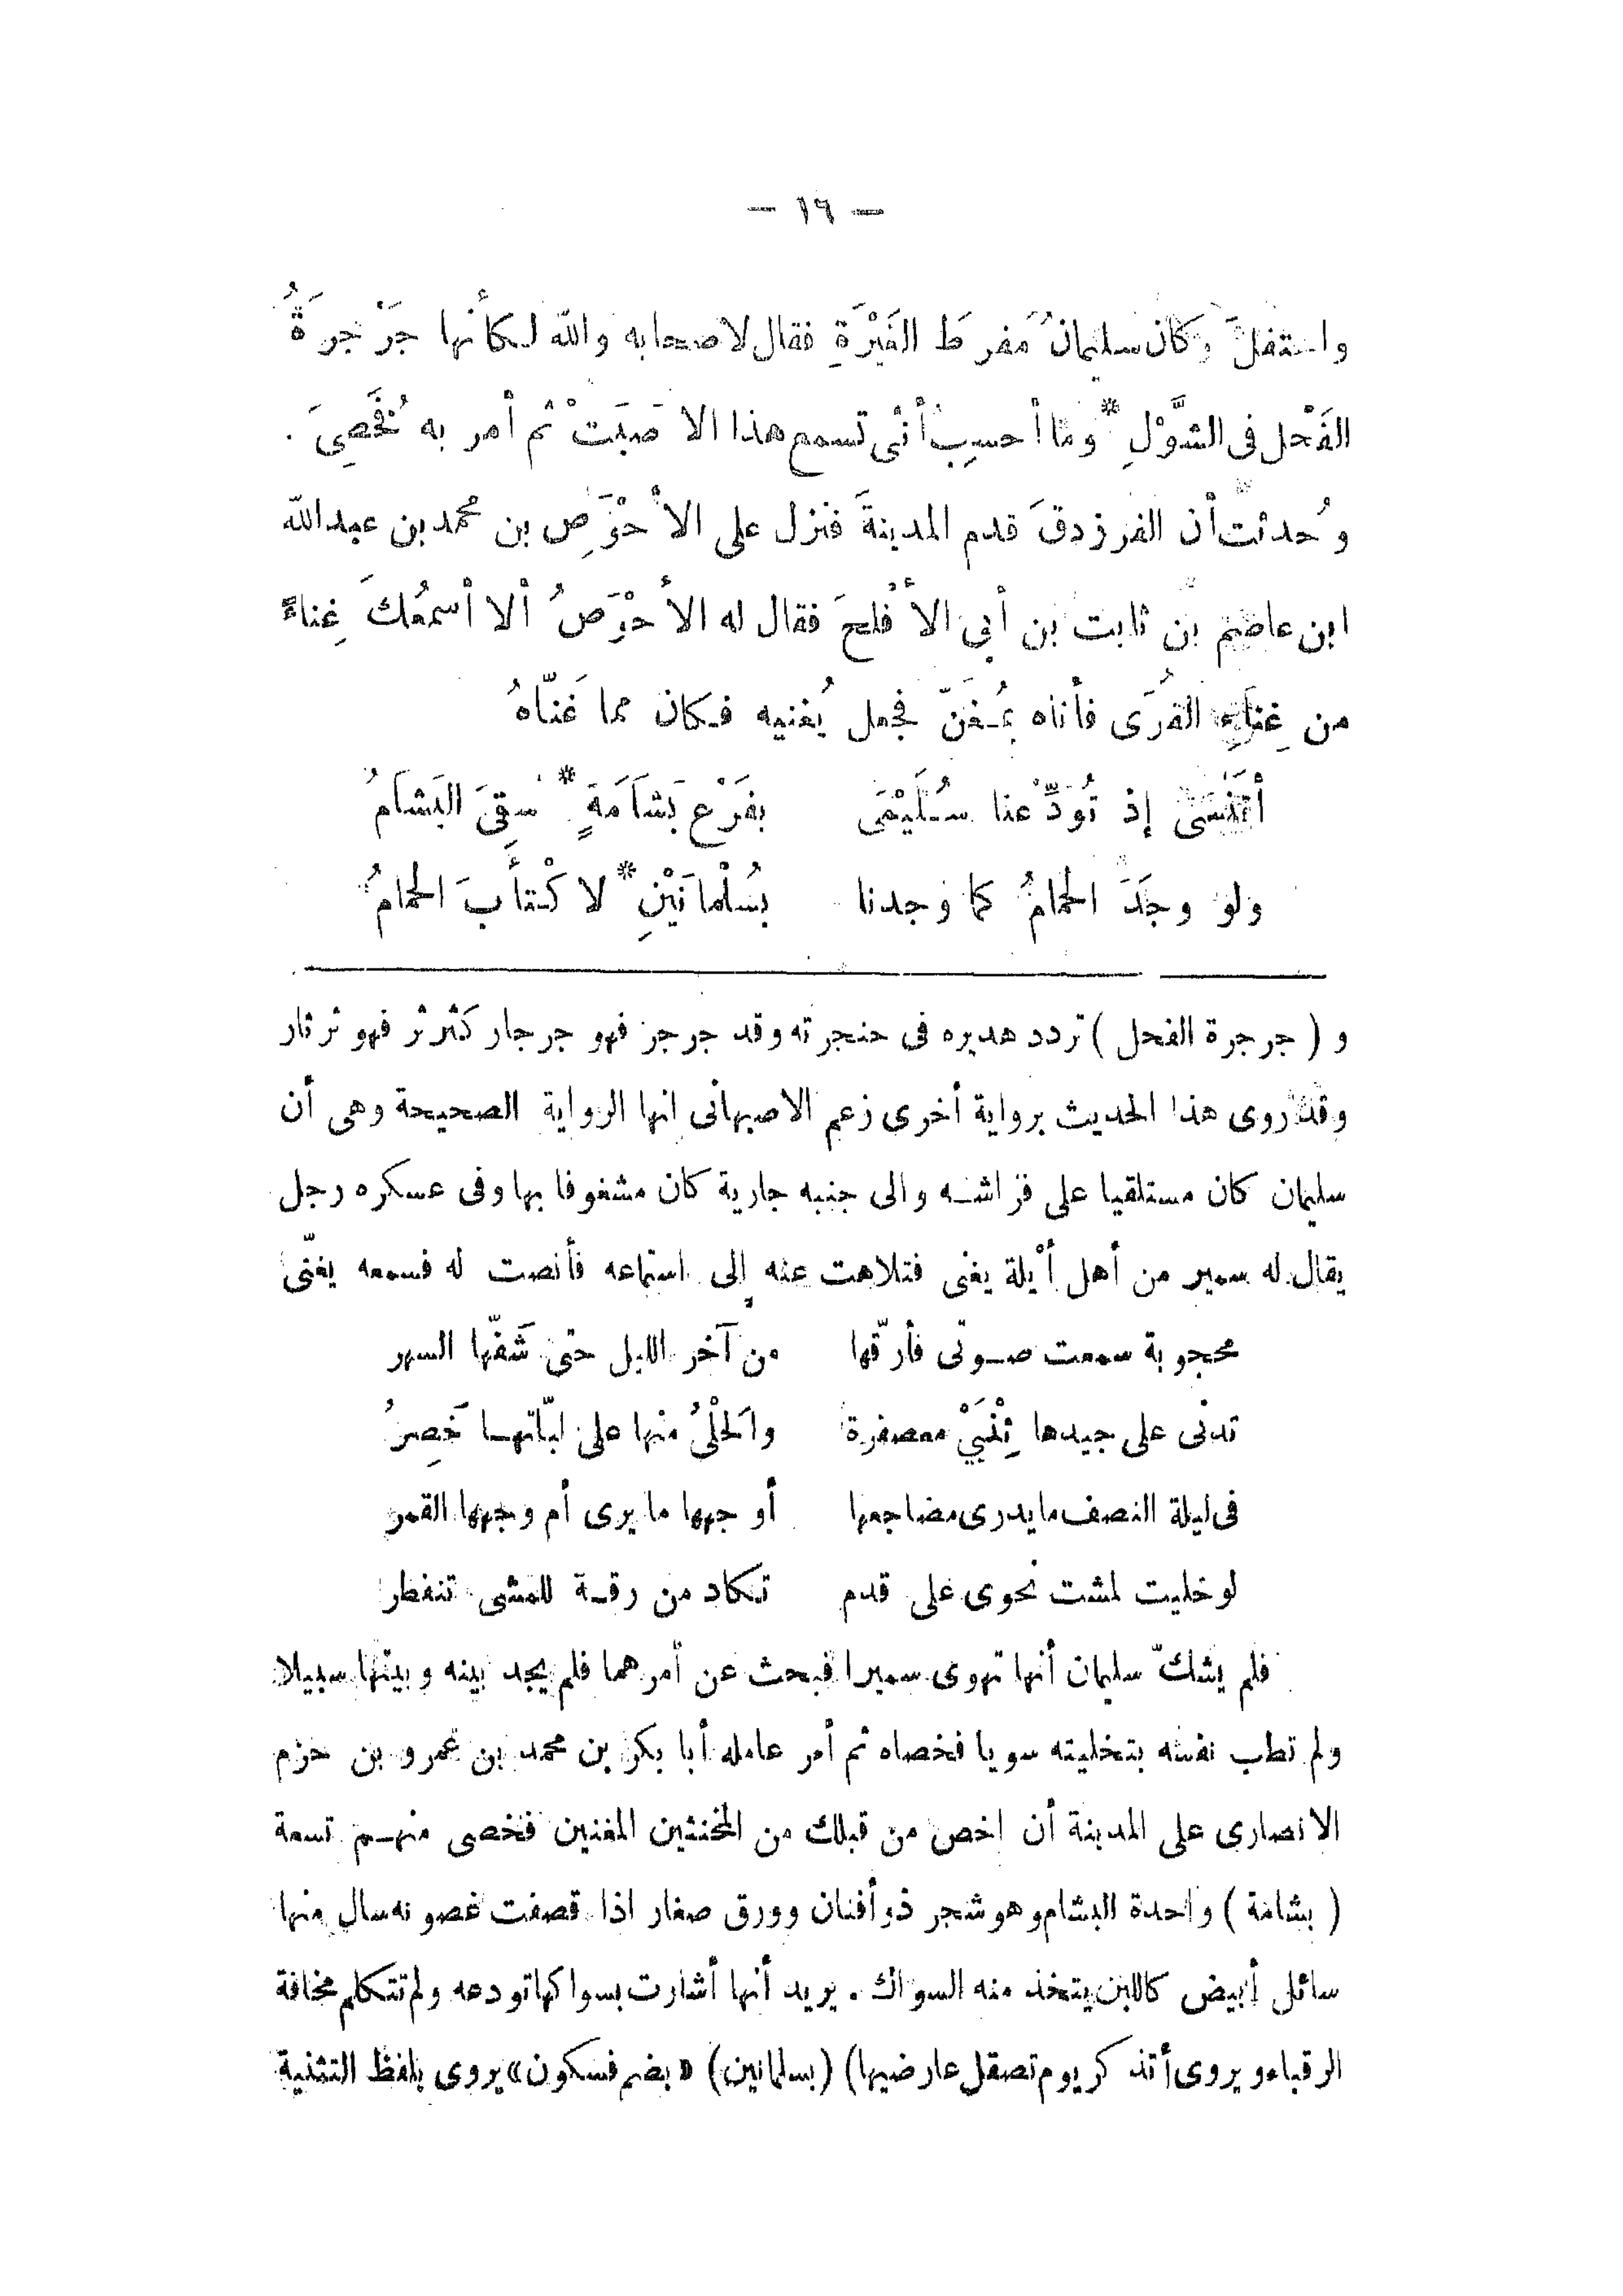 — ١٦ —
واحتفلَ وكان سليمانُ مُفرِطَ الغَيْرَةِ فقال لاصحابه والله لكأنها جَرْجرةُ
الفَحْل فى الشَّوْلِ * وما أحسِبُ أنثى تسمع هذا الا صَبَتْ ثم أمر به فخُصِىَ .
وحُدثت أن الفرزدقَ قدم المدينةَ فنزل على الأحْوَصِ بن محمد بن عبد الله
ابن عاصم بن ثابت بن أبى الأقْلَحِ فقال له الأحْوَصُ ألا أُسمعُك غِناءً
من غِنَاءِ القُرَى فأتاه بمُغَنّ فجعل يُغنيه فكان مما غَنّاهُ
أتَنْسَى إذ تُوَدِّعنا سُلَيْمَى بفَرْعِ بَشَامَةٍ * سقِىَ البَشَامُ
ولو وجَدَ الحَمامُ كما وجدنا بسُلْمانَيْنِ * لاكْتأَبَ الحَمامُ
و ( جرجرة الفحل ) تردد هديره فى حنجرته وقد جرجر فهو جرجار كثرثر فهو ثرثار
وقد روى هذا الحديث برواية أخرى زعم الاصبهانى انها الرواية الصحيحة وهى أن
سليمان كان مستلقيا على فراشه والى جنبه جارية كان مشغوفا بها وفى عسكره رجل
يقال له سمير من أهل أَيْلة يغنى فتلاهت عنه إلى استماعه فأنصت له فسمعه يغنّى
محجوبة سمعت صوتى فأرّقها من آخر الليل حتى شَفّها السهر
تدنى على جيدها ثِنْيَيْ معصفرة والحَلْىُ منها على لبّاتها خَصِرُ
فى ليلة النصف ما يدرى مضاجعها أوجهها ما يرى أم وجهها القمر
لو خليت لمشت نحوى على قدم تكاد من رقة للمشى تنفطر
فلم يشكّ سليمان أنها تهوى سميرا فبحث عن أمرهما فلم يجد بينه وبينها سبيلا
ولم تطب نفسه بتخليته سويا فخصاه ثم أمر عامله أبا بكر بن محمد بن عمرو بن حزم
الانصارى على المدينة أن اخص من قبلك من المخنثين المغنين فخصى منهم تسعة
( بشامة ) واحدة البشام وهو شجر ذو أفنان وورق صغار اذا قصفت غصونه سال منها
سائل أبيض كاللبن يتخذ منه السواك . يريد أنها أشارت بسواكها تودعه ولم تتكلم مخافة
الرقباء ويروى أتذكر يوم تصقل عارضيها) (بسلمانين) «بضم فسكون» يروى بلفظ التثنية